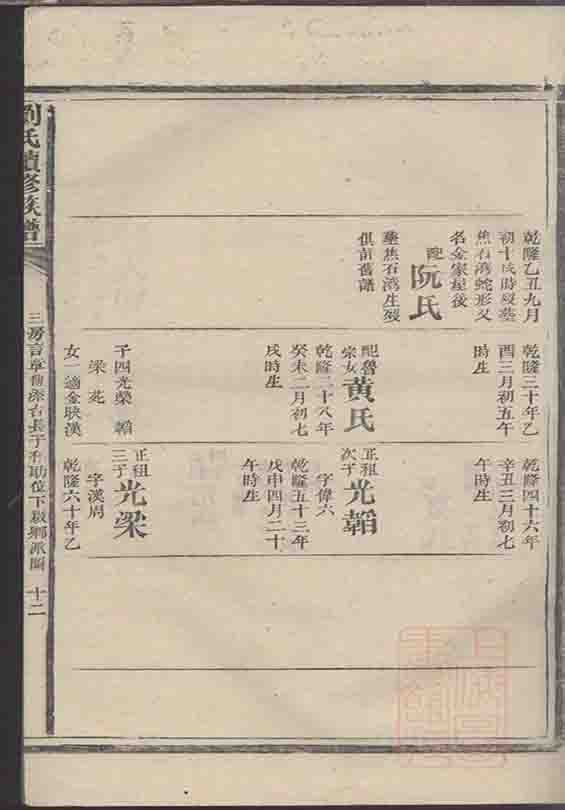 乾隆乙丑九月
初十戌時歿塟
焦石湾蛇形又
名金家屋後
配
阮氏
塟焦石湾生歿
俱前舊譜
乾隆三十年乙
酉三月初五午
時生
配魯
宗女
黄氏
乾隆二十八年
癸未二月初七
戌時生
子四光榮 韜
梁
女一適金映漢
乾隆四十六年
辛丑三月初七
午時生
正祖
次子
光韜
字偉六
乾隆五十三年
戊申四月二十
午時生
正祖
三子
光梁
字漢周
乾隆六十年乙
劉氏續修族譜
三房言章魯派右長子利助位下
派圖
十二